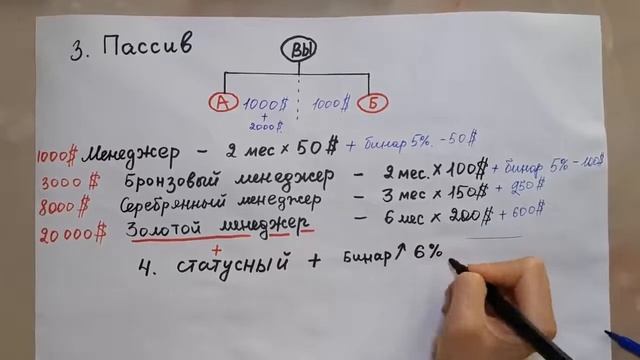 3. Пассив
ВЫ
А 1000$ 1000$ Б
+
2000$
1000$ Менеджер - 2 мес × 50$ + бинар 5%. -50$
3000$ Бронзовый менеджер - 2 мес. × 100$ + бинар 5% - 100$
8000$ Серебрянный менеджер - 3 мес × 150$ + 250$
20 000$ Золотой менеджер - 6 мес × 200$ + 600$
+
4. статусный + бинар ↑ 6%